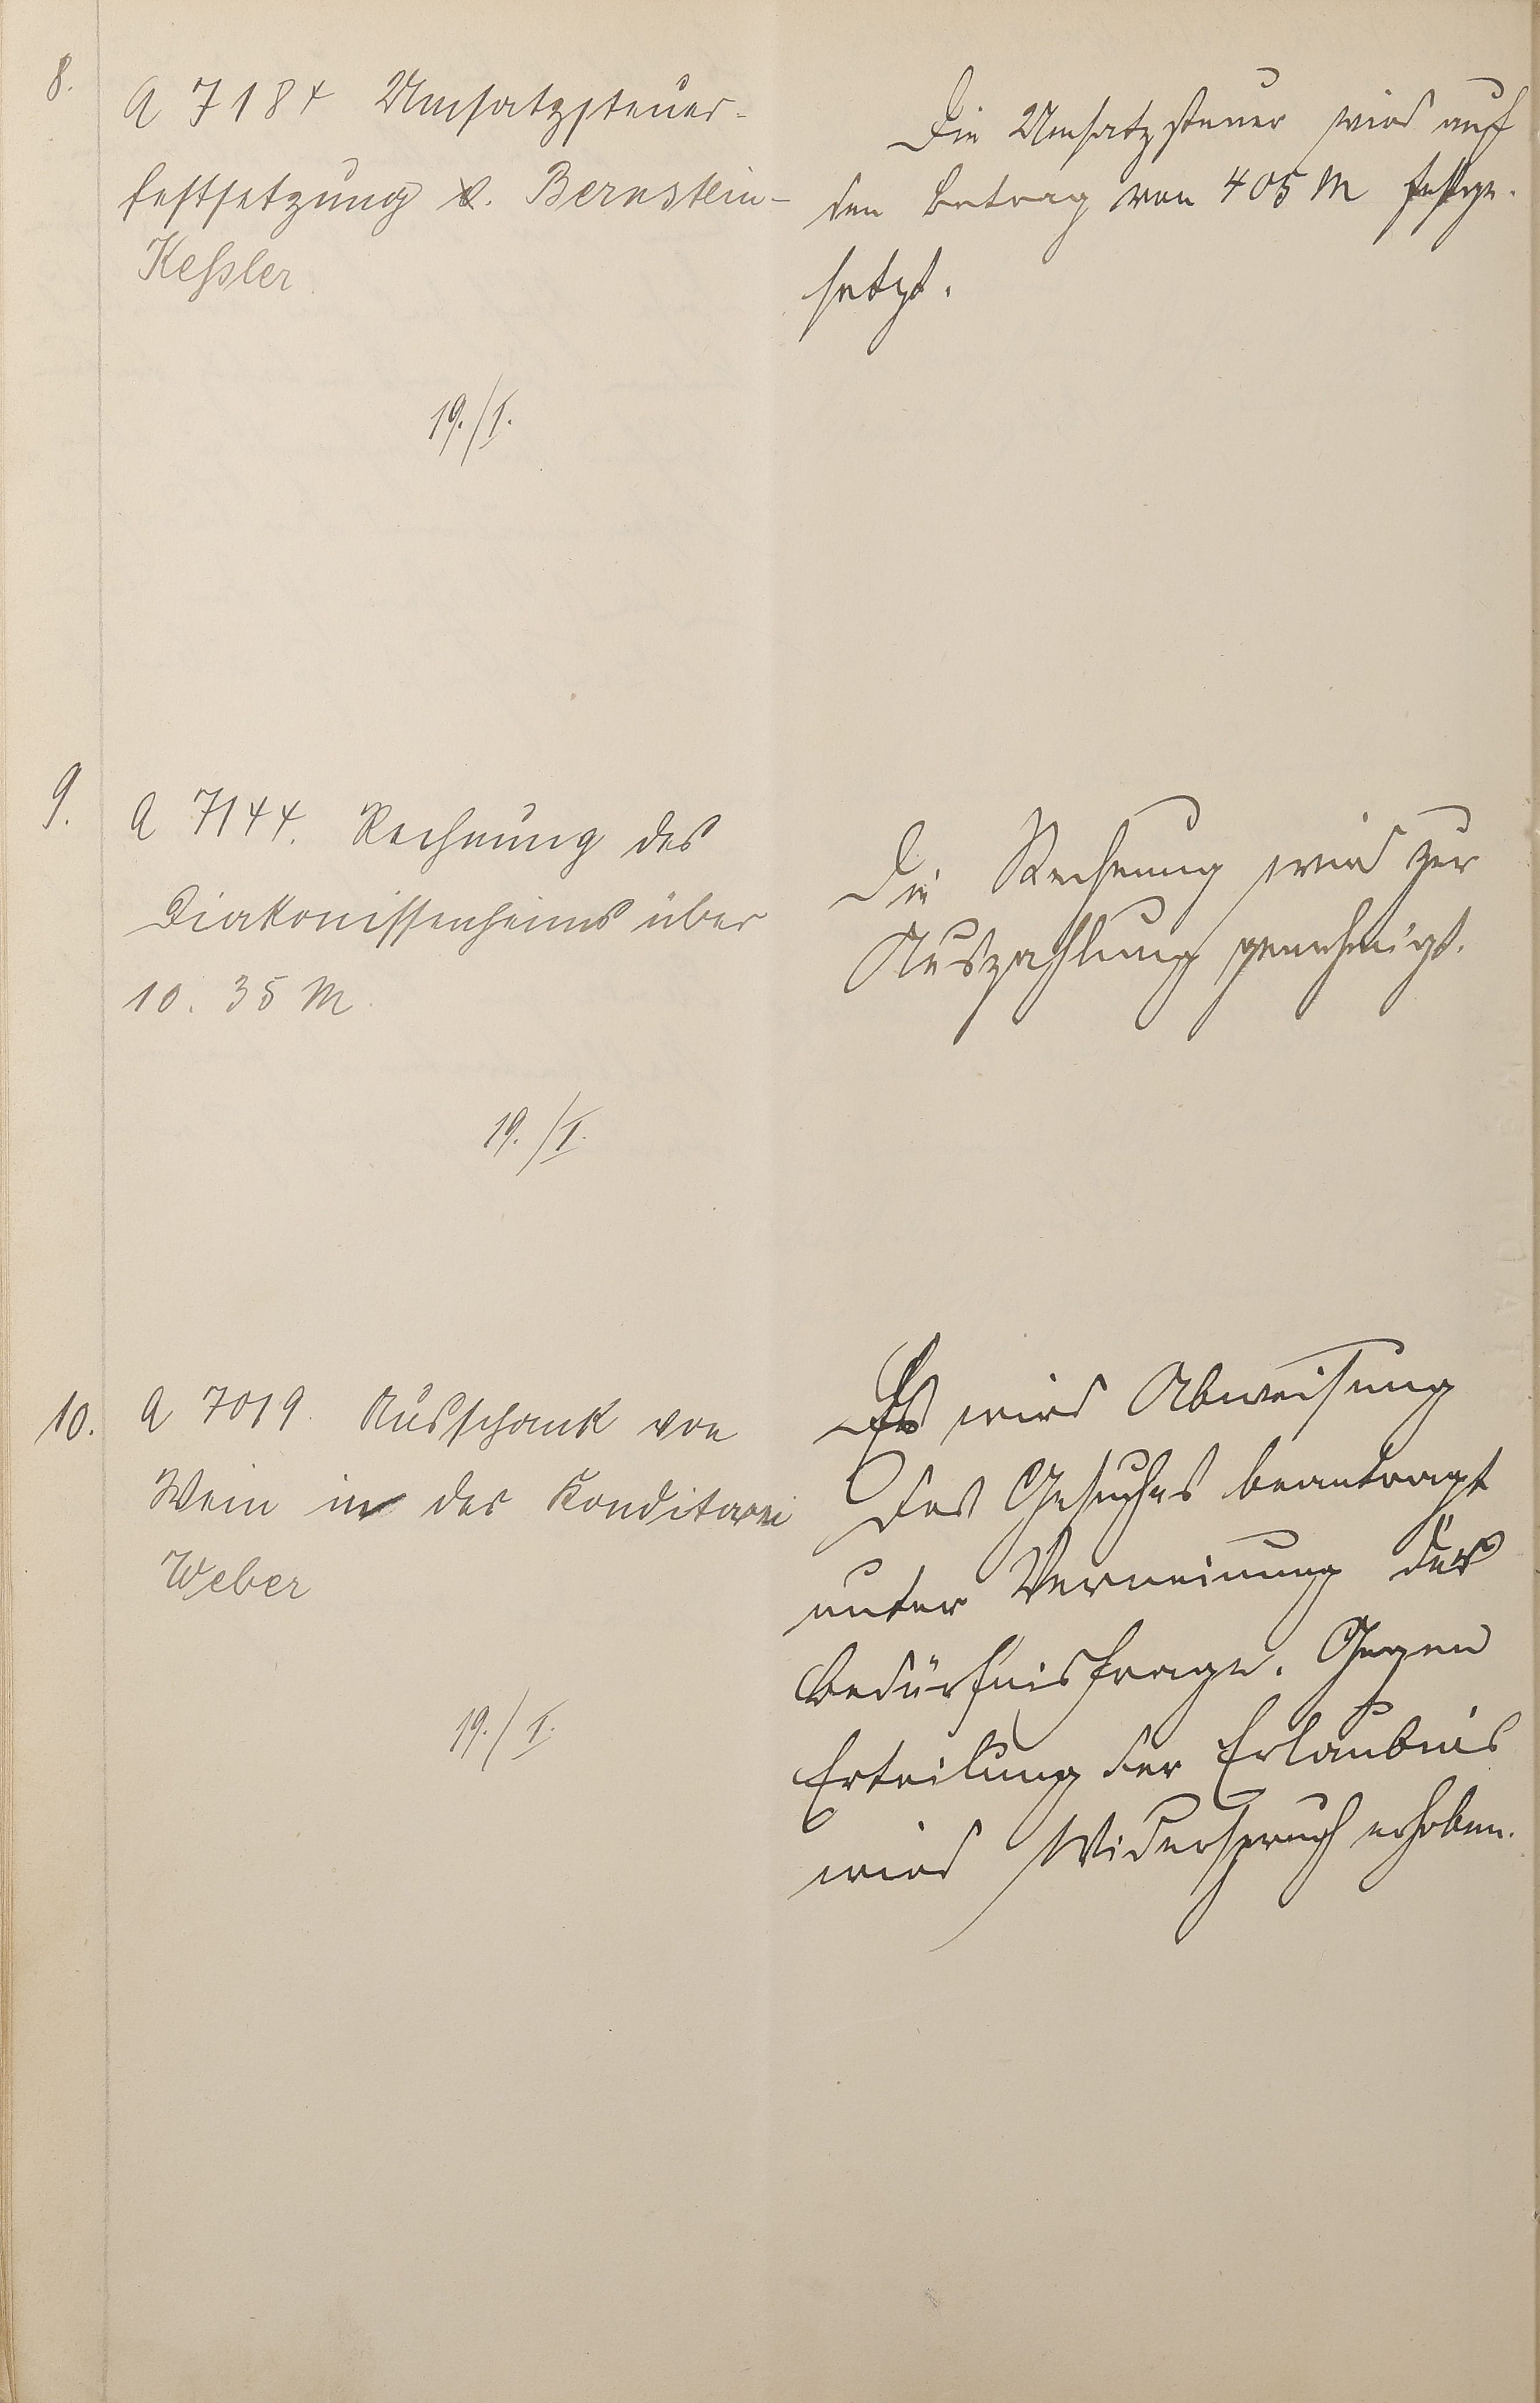 8.
A 7184 Umsatzsteuer-
festsetzung v. Bernstein-
Keßler
19./I.
Die Umsatzsteuer wird auf
den Betrag von 405 M festge-
setzt.
9.
A 7144. Rechnung des
Diakonissenheims über
10. 35 M.
19./I.
Die Rechnung wird zur
Auszahlung genehmigt.
10.
A 7019. Ausschank von
Wein in der Konditorei
Weber
19./I.
Es wird Abweisung
des Gesuches beantragt
unter Verneinung der
Bedürfnisfrage. Gegen
Erteilung der Erlaubnis
wird Widerspruch erhoben.